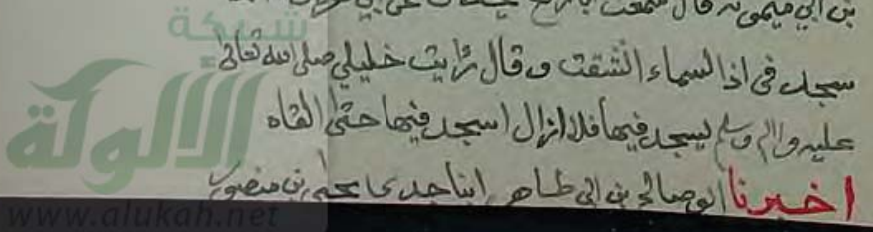 بن ابي ميمونة قال سمعت
سجد في اذا السماء انشقت وقال رأيت خليلي صلى الله تعالى
عليه واله وسلم يسجد فيها فلا ازال اسجد فيها حتى القاه
اخبرنا ابو صالح بن ابي طاهر انا جدي يحيى بن منصور
شبكة
الألوكة
www.alukah.net